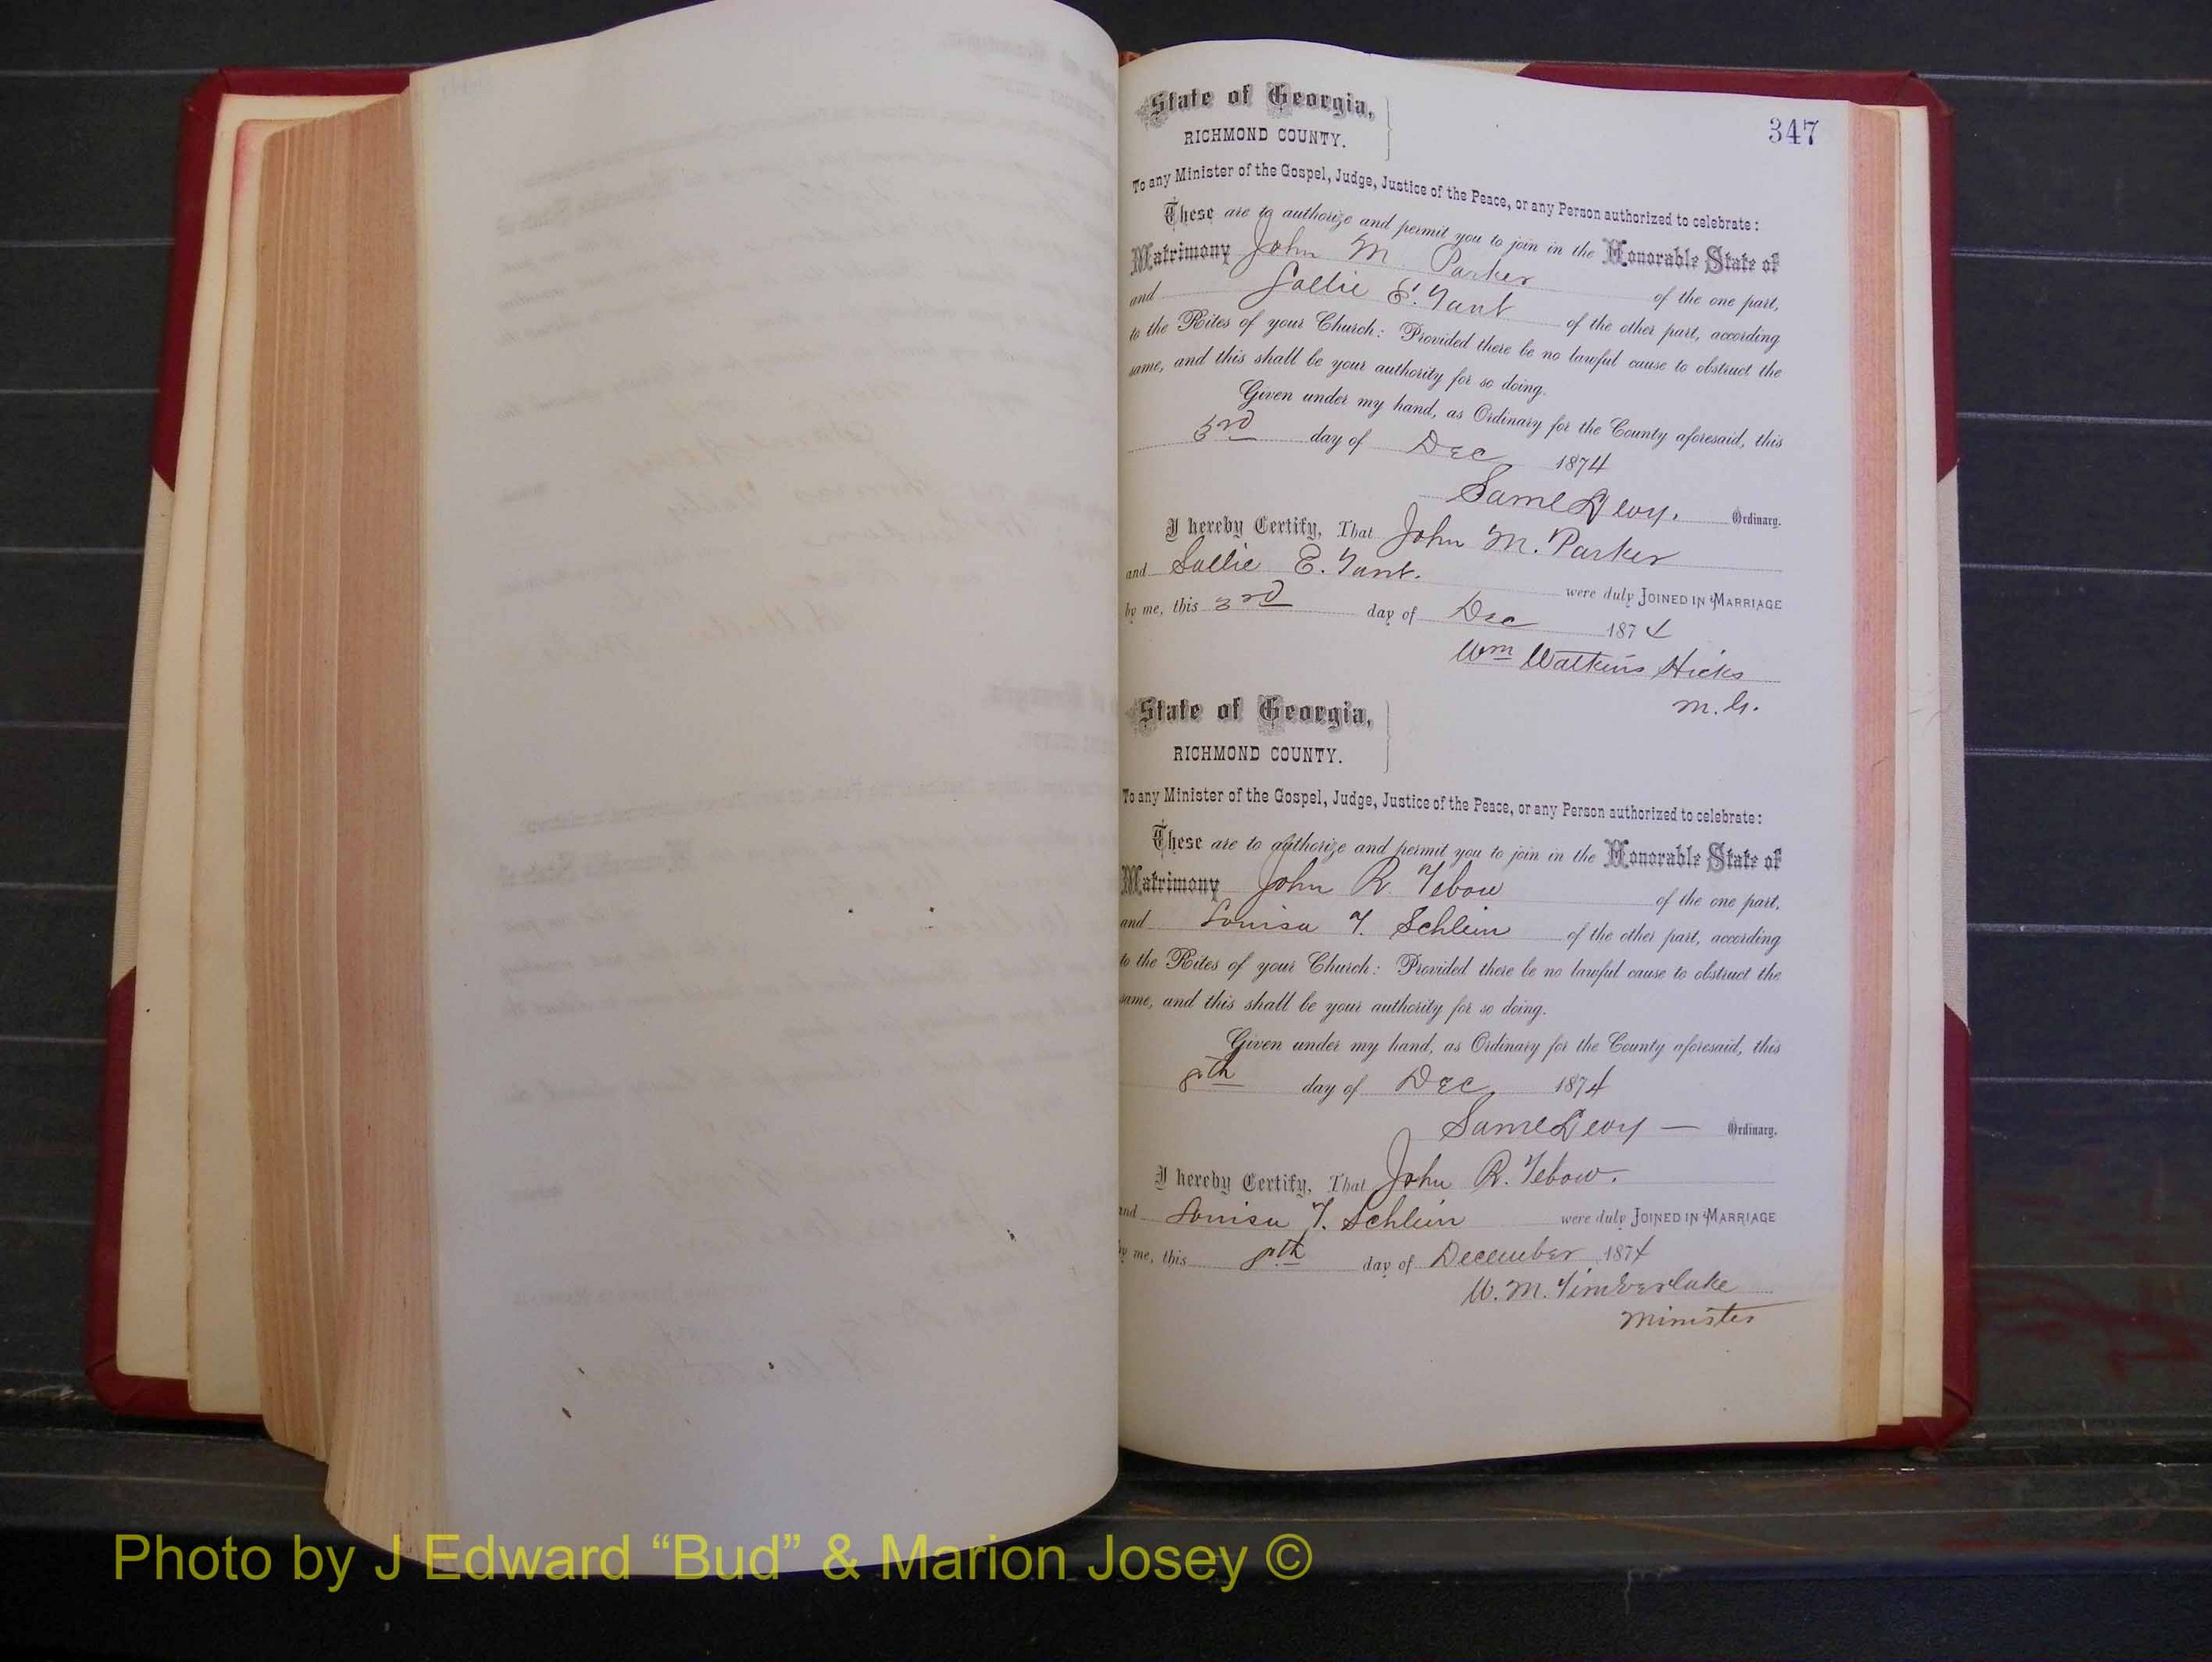 State of Georgia,
RICHMOND COUNTY.
347
To any Minister of the Gospel, Judge, Justice of the Peace, or any Person authorized to celebrate:
These are to authorize and permit you to join in the Honorable State of
Matrimony John M Parker of the one part,
and Sallie E. Tant of the other part, according
to the Rites of your Church: Provided there be no lawful cause to obstruct the
same, and this shall be your authority for so doing.
Given under my hand, as Ordinary for the County aforesaid, this
3rd day of Dec 1874
Saml Levy. Ordinary.
I hereby Certify, That John M. Parker
and Sallie E. Tant. were duly JOINED IN MARRIAGE
by me, this 3rd day of Dec 1874
Wm Watkins Hicks
M.G.
State of Georgia,
RICHMOND COUNTY.
To any Minister of the Gospel, Judge, Justice of the Peace, or any Person authorized to celebrate:
These are to authorize and permit you to join in the Honorable State of
Matrimony John R. Tebow of the one part,
and Louisa T. Schlein of the other part, according
to the Rites of your Church: Provided there be no lawful cause to obstruct the
same, and this shall be your authority for so doing.
Given under my hand, as Ordinary for the County aforesaid, this
8th day of Dec 1874
Saml Levy — Ordinary.
I hereby Certify, That John R. Tebow.
and Louisa T. Schlein were duly JOINED IN MARRIAGE
by me, this 8th day of December 1874
W. M. Timberlake
Minister
Photo by J Edward “Bud” & Marion Josey ©